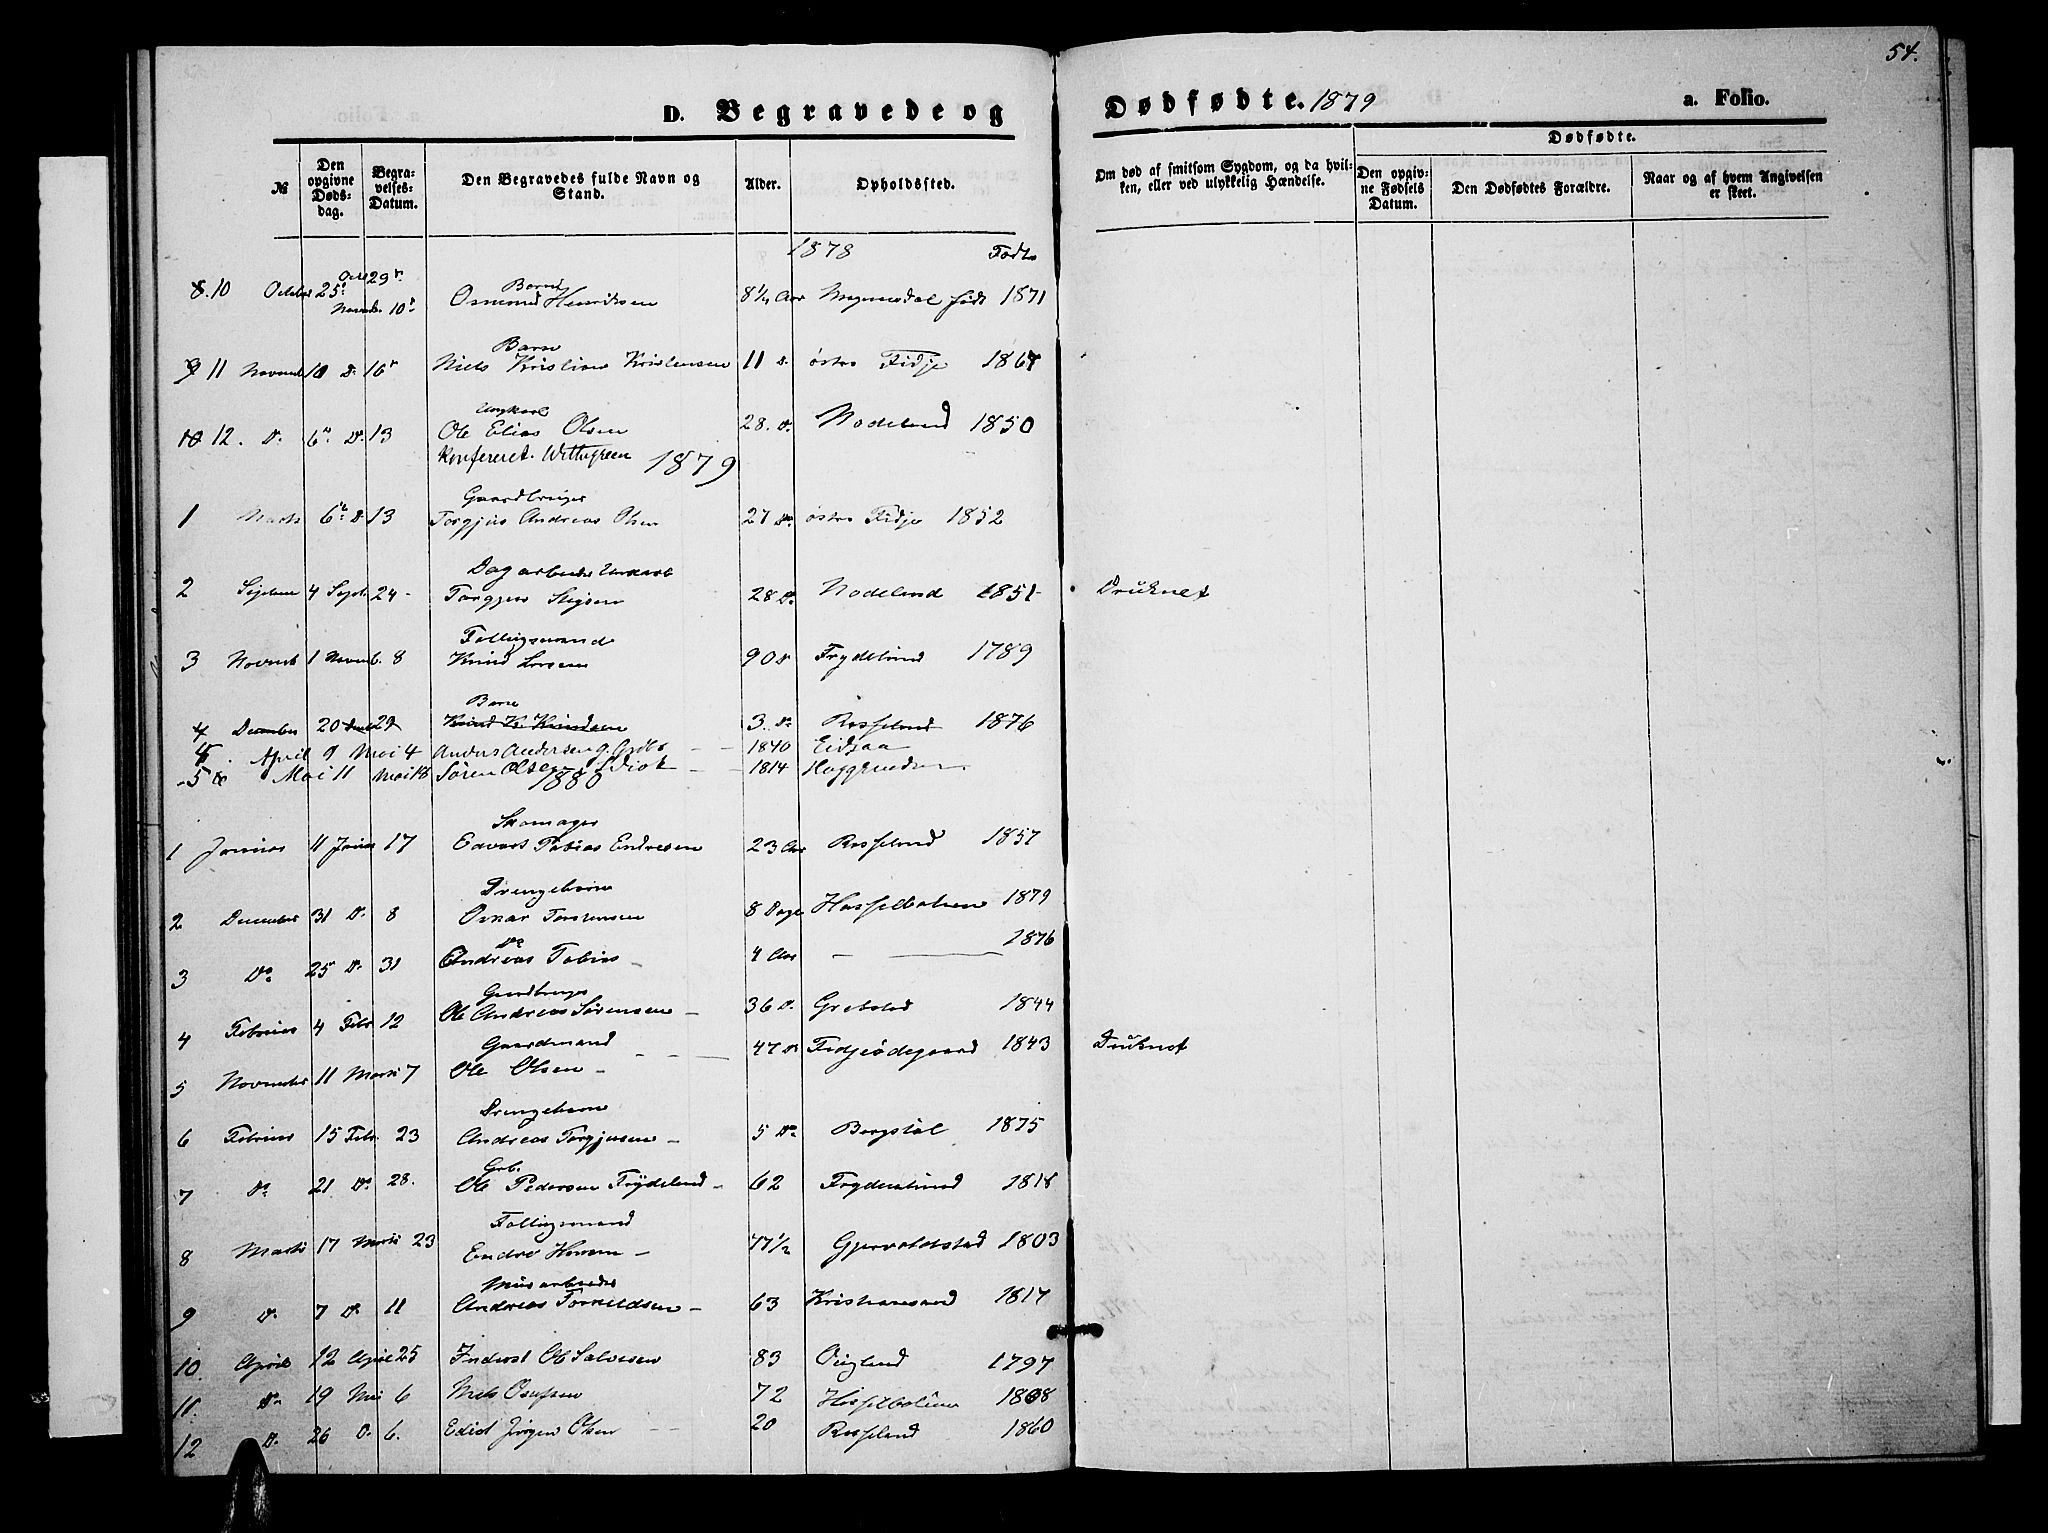 54.
D. Begravede og Dødfødte. 1879 a. Folio.
№
Den opgivne Dødsdag.
Begravelses-Datum.
Den Begravedes fulde Navn og Stand.
Alder.
Opholdssted.
Om død af smitsom Sygdom, og da hvilken, eller ved ulykkelig Hændelse.
Dødfødte.
Den opgivne Fødsels Datum.
Den Dødfødtes Forældre.
Naar og af hvem Angivelsen er skeet.
1878 Født
Barn
8. 10 October 25 29 10 Osmund Henriksen 8 1/4 Aar født 1871
Barn
9 11 Novemb 10 D. 16 Niels Kristian Kristensen 11 D. østre Fidje
Ungkarl
10 12. D. 6 D. 13 Ole Elias Olsen 28. D. Nodeland 1850
Konfereret. Wettergreen 1879
Gaardbruger
1 Marts 6 D. 13 Torgjus Andreas Olsen 27 Do østre Fidje 1852
Dagarbeider Unkarl
2 Septem 4 Septb 24 28 Do Nodeland 1851 Druknet
Føllingsmand
3 Novemb 1 Novemb. 8 Knud Larsen 90 D Frydelund 1789
Barn
4 December 20 29 Knud K. Knudsen 3. Do Rosseland 1876
April 9 Mai 4 Anders Andersen 1840 Eidsaa
5 Mai 11 Mai 18 Søren Olsen 1814
1880
Skomager
1 Januar 11 Januar 17 Edvart Tobias Endresen 23 Aar Rosseland 1857
Drengebarn
2 December 31 D. 8 Oskar Torstensen 8 Dage Hasselbakene 1879
Do
3 Do 25 D. 31 Andreas Tobias 4 Aar 1876
Gaardbruger
4 Februar 4 Febr 12 Ole Andreas Sørensen 36 D. Grebstad 1844
Gaardmand
5 November 11 Marts 7 Ole Olsen 47 D Fidjeødegaard 1843 Druknet
Drengebarn
6 Februar 15 Febr. 23 Andreas Torgjusen 5 Do Bergstøl 1875
Grb.
7 Do 21 Do 28. Ole Pedersen Frydelund 62 1818
Føllingsmand
8 Marts 17 Marts 23 Endre 77 1/2 Gjervoldstad 1803
9 D. 7 D. 11 Andreas Torkildsen 63 Kristiansand 1817
10. April 12 April 25 Inderst Ole Salvesen 83 Øigland 1797
11. Do 19 Mai 6 Niels 72 Hasselbakene 1808
12 D. 26 D. 6. Jørgen Olsen 20 Rosseland 1860